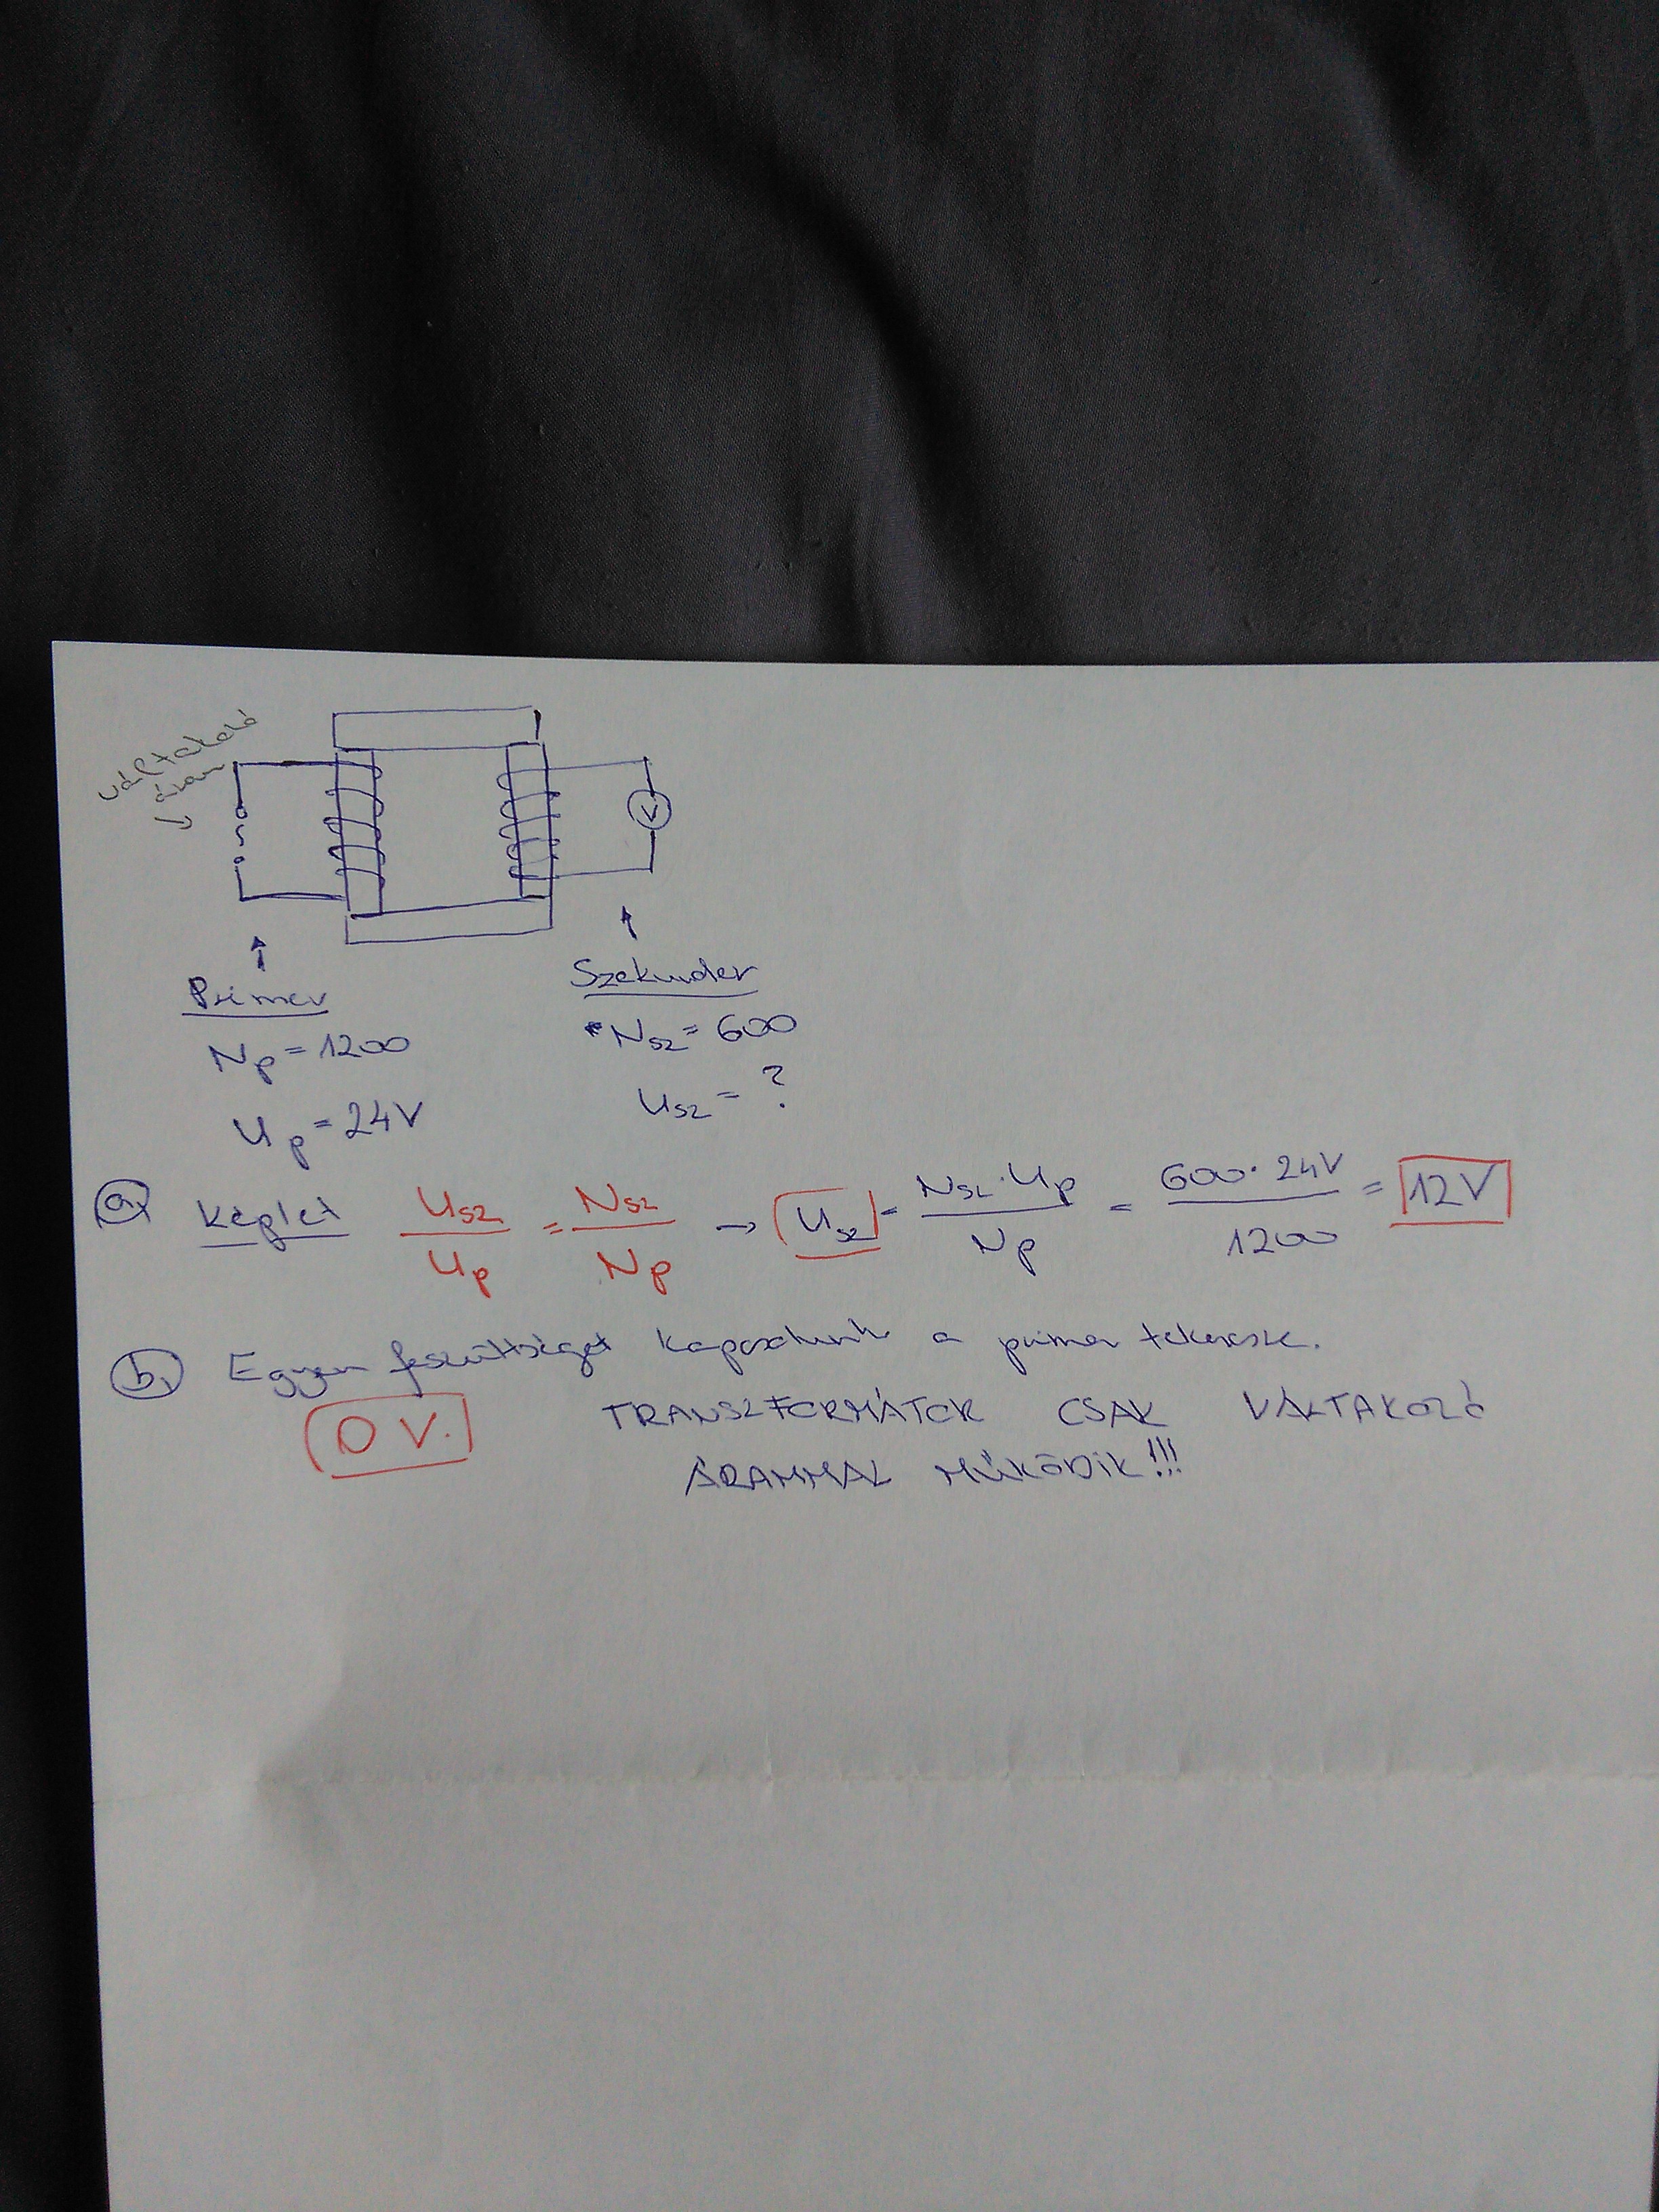 váltakozó
áram
V
Primer
Np = 1200
Up = 24V
Szekunder
Nsz = 600
Usz = ?
a, Képlet Usz/Up = Nsz/Np → Usz = Nsz·Up/Np = 600·24V/1200 = 12V
b, Egyen feszültséget kapcsolunk a primer tekercsre.
0 V. TRANSZFORMÁTOR CSAK VÁLTAKOZÓ
ÁRAMMAL MŰKÖDIK!!!